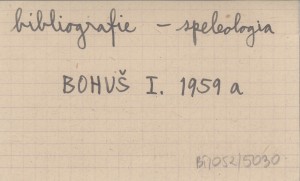 bibliografie - speleologia
BOHUŠ I. 1959 a
Bi/052/5030